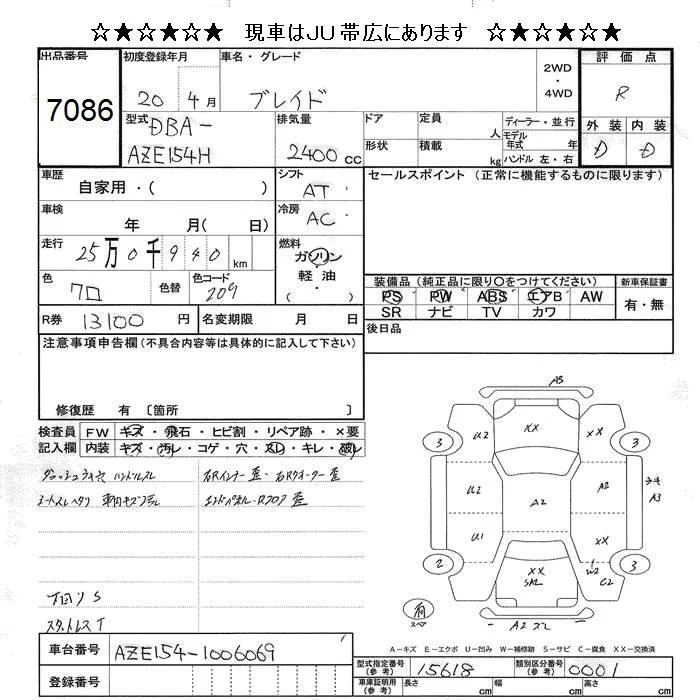 ☆★☆★☆★☆ 現車はJU帯広にあります ☆★☆★☆★☆
出品番号 7086
初度登録年月 20 4月
車名・グレード ブレイド
2WD・4WD
評価点 R
外装 D 内装 D
型式 DBA-
AZE154H
排気量 2400cc
ドア 定員 人
形状 積載 kg
ディーラー・並行
モデル年式 年
ハンドル 左・右
車歴 自家用・( )
シフト AT
セールスポイント(正常に機能するものに限ります)
車検 年 月( 日)
冷房 AC
走行 25万0千940km
燃料 ガソリン・軽油・( )
色 クロ 色替 色コード 209
装備品(純正品に限り○をつけてください)
PS PW ABS エアB AW
SR ナビ TV カワ
新車保証書 有・無
R券 13100円
名変期限 月 日
後日品
注意事項申告欄(不具合内容等は具体的に記入して下さい)
修復歴 有〔箇所 〕
検査員記入欄
FW キズ・飛石・ヒビ割・リペア跡・×要
内装 キズ・汚レ・コゲ・穴・スレ・キレ・破レ
ダッシュライン穴 ハンドルスレ
シートスレヘタリ 車内キズヨゴレ
右Rインナー歪・右Rクォーター歪
エンドパネル・Rフロア歪
下回りS
スタットレスT
A3
U2 XX XX
3 3
U2 A2 A2 A3
U1 XX
XX W2
SA2 C2
2 3
有 スペア A2
A-キズ E-エクボ U-凹み W-補修跡 S-サビ C-腐食 XX-交換済
車台番号 AZE154-1006069
登録番号
型式指定番号(参考) 15618
類別区分番号(参考) 0001
車庫証明用(参考) 長さ cm 幅 cm 高さ cm